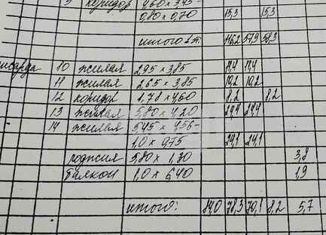 9 коридор 2,60 × 3,45 -
0,80 × 0,70 15,3 15,3
итого 1 эт. 116,2 57,9 58,3
10 жилая 2,95 × 3,85 11,4 11,4
11 жилая 2,65 × 3,85 10,2 10,2
12 коридор 1,78 × 4,60 8,2 8,2
13 жилая 5,80 × 4,20 24,4 24,4
14 жилая 5,45 ×
1,0 × 0,75 24,1 24,1
лоджия 5,80 × 1,30 3,8
балкон 1,0 × 6,40 1,9
итого: 78,3 70,1 8,2 5,7